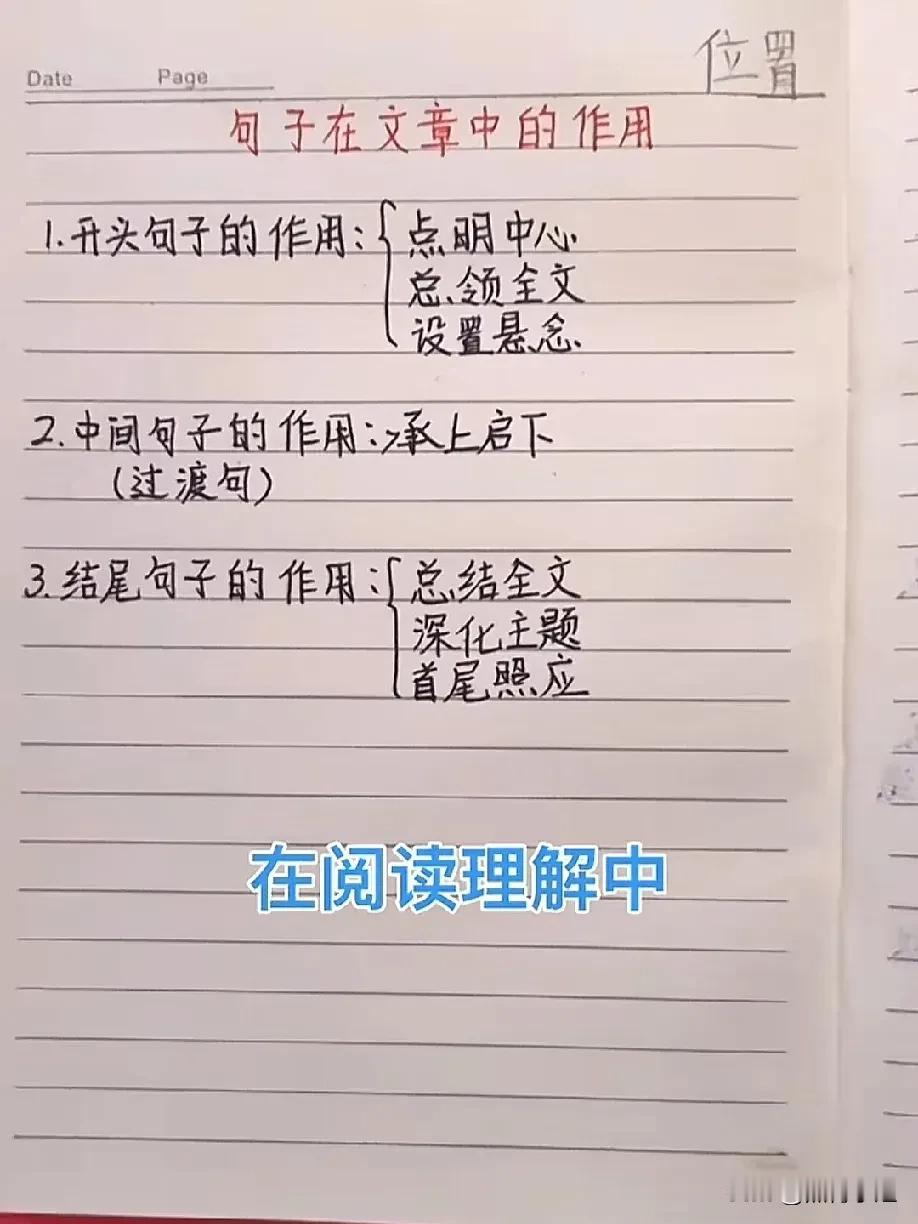 位置
Date Page
句子在文章中的作用
1.开头句子的作用:{点明中心
总领全文
设置悬念
2.中间句子的作用:承上启下
(过渡句)
3.结尾句子的作用:{总结全文
深化主题
首尾照应
在阅读理解中